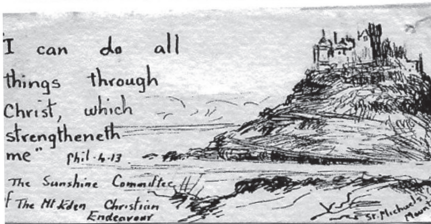 "I can do all
things through
Christ, which
strengtheneth
me" Phil. 4.13
The Sunshine Committee
of The Mt Eden Christian
Endeavour
St. Michael's
Mount